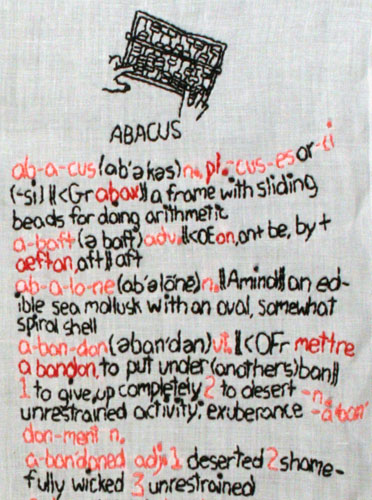 ABACUS
ab-a-cus (ab'ə kəs) n. pl. -cus-es or -ci
(-si) ‖<Gr abax‖ a frame with sliding
beads for doing arithmetic
a-baft (ə baft) adv. ‖<OE on, on + be, by +
aeftan, aft‖ aft
ab-a-lo-ne (ab'ə lōnē) n. ‖AmInd‖ an ed-
ible sea mollusk with an oval, somewhat
spiral shell
a-ban-don (əban'dən) vt. ‖<OFr mettre
a bandon, to put under (anothers) ban‖
1 to give up completely 2 to desert -n.
unrestrained activity; exuberance -a-ban'
don-ment n.
a-ban'doned adj. 1 deserted 2 shame-
fully wicked 3 unrestrained